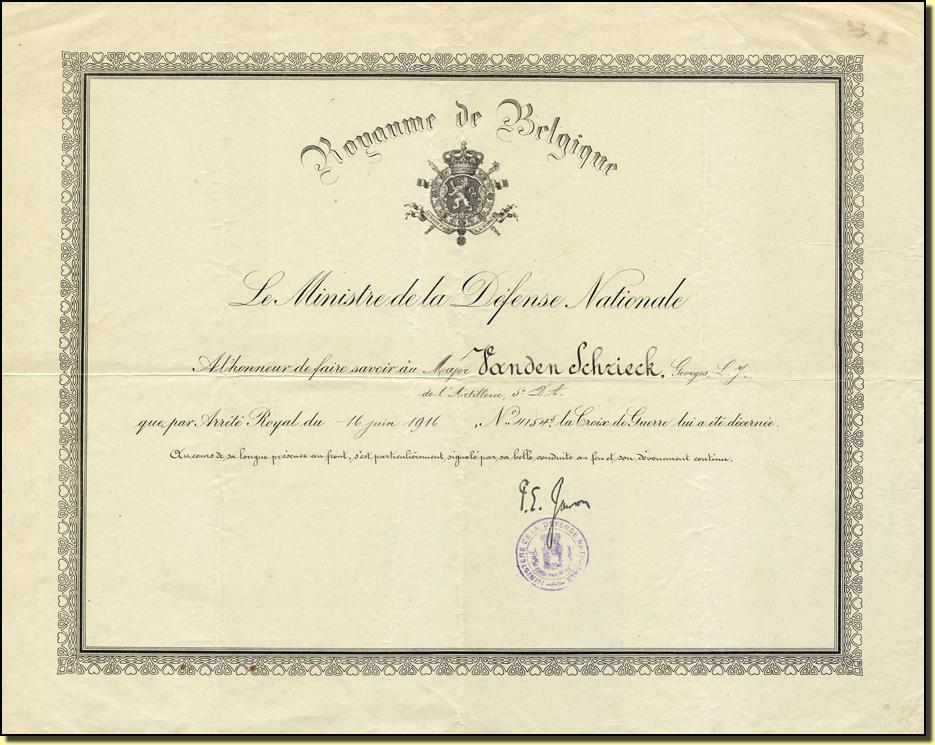 Royaume de Belgique
Le Ministre de la Défense Nationale
A l'honneur de faire savoir au Major Vanden Schrieck, Georges, L. J.
de l'Artillerie, 5e D. A.
que par Arrêté Royal du 16 juin 1916, No la Croix de Guerre lui a été décernée.
Au cours de sa longue présence au front, s'est particulièrement signalé par sa belle conduite au feu et son dévouement continu.
MINISTERE DE LA DEFENSE NATIONALE